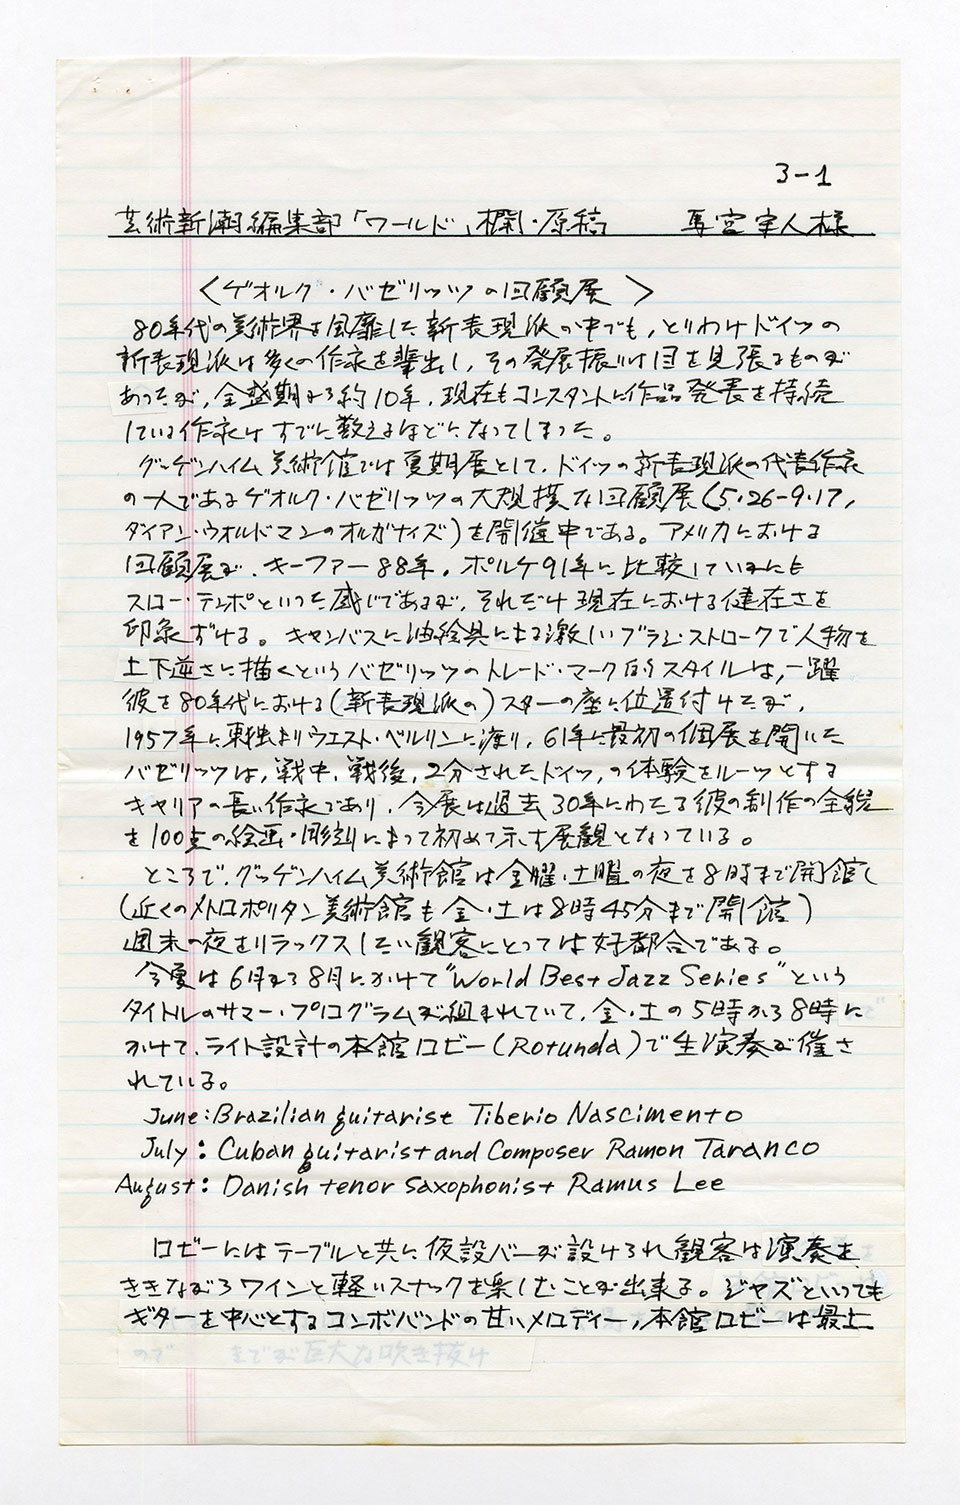 3-1
芸術新潮編集部「ワールド」欄・原稿 馬宮実人様
〈ゲオルク・バゼリッツの回顧展〉
80年代の美術界を風靡した新表現派の中でも，とりわけドイツの
新表現派は多くの作家を輩出し，その発展振りは目を見張るものが
あったが，全盛期から約10年，現在もコンスタントに作品発表を持続
している作家はすでに数えるほどになってしまった。
グッゲンハイム美術館では夏期展として，ドイツの新表現派の代表作家
の一人であるゲオルク・バゼリッツの大規模な回顧展（5・26-9・17，
ダイアン・ウォルドマンのオルガナイズ）を開催中である。アメリカにおける
回顧展が，キーファー88年，ポルケ91年に比較しているにも
スロー・テンポといった感じであるが，それだけ現在における健在さを
印象ずける。キャンバスに油絵具による激しいブラシ・ストロークで人物を
上下逆さに描くというバゼリッツのトレード・マーク的スタイルは，一躍
彼を80年代における（新表現派の）スターの座に位置付けたが，
1957年に東独よりウエスト・ベルリンに渡り，61年に最初の個展を開いた
バゼリッツは，戦中，戦後，2分されたドイツ，の体験をルーツとする
キャリアの長い作家であり，今展は過去30年にわたる彼の制作の全貌
を100点の絵画・彫刻によって初めて示す展観となっている。
ところで，グッゲンハイム美術館は金曜・土曜の夜を8時まで開館し
（近くのメトロポリタン美術館も金・土は8時45分まで開館）
週末の夜をリラックスしたい観客にとっては好都合である。
今夏は6月から8月にかけて"World Best Jazz Series"という
タイトルのサマー・プログラムが組まれていて，金・土の5時から8時に
かけて，ライト設計の本館ロビー（Rotunda）で生演奏が催さ
れている。
June: Brazilian guitarist Tiberio Nascimento
July: Cuban guitarist and Composer Ramon Taranco
August: Danish tenor saxophonist Ramus Lee
ロビーにはテーブルと共に仮設バーが設けられ観客は演奏を
ききながらワインと軽いスナックを楽しむことが出来る。ジャズといっても
ギターを中心とするコンボバンドの甘いメロディー，本館ロビーは最上
までが巨大な吹き抜け